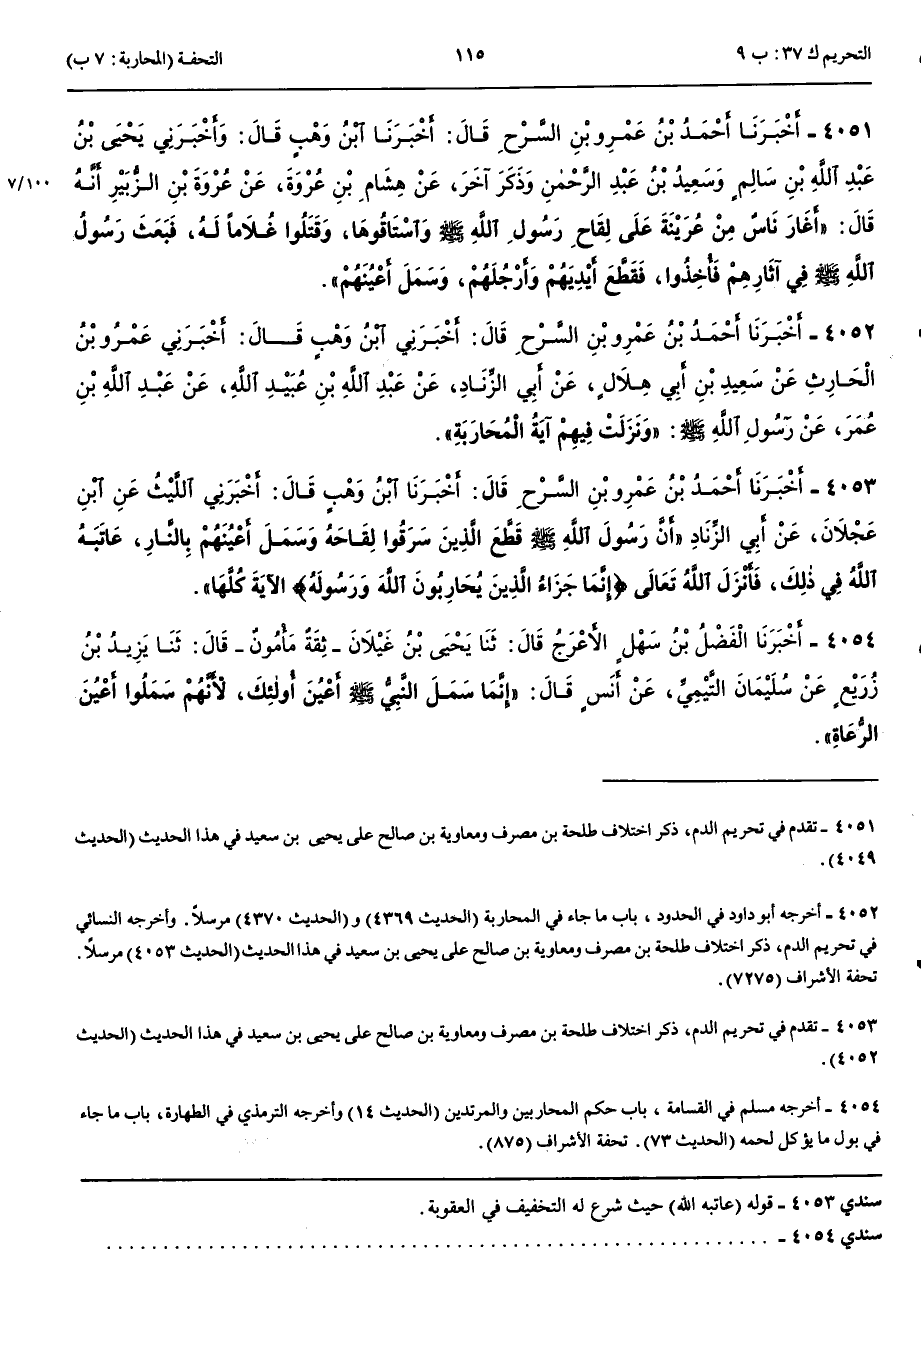 التحريم ك ٣٧: ب ٩
١١٥
التحفة (المحاربة: ٧ ب)
٤٠٥١ - أَخْبَرَنَا أَحْمَدُ بْنُ عَمْرِو بْنِ السَّرْحِ قَالَ: أَخْبَرَنَا ٱبْنُ وَهْبٍ قَالَ: وَأَخْبَرَنِي يَحْيَى بْنُ
عَبْدِ ٱللَّهِ بْنِ سَالِمٍ وَسَعِيدُ بْنُ عَبْدِ الرَّحْمٰنِ وَذَكَرَ آخَرَ، عَنْ هِشَامِ بْنِ عُرْوَةَ، عَنْ عُرْوَةَ بْنِ الزُّبَيْرِ أَنَّهُ
٧/١٠٠
قَالَ: «أَغَارَ نَاسٌ مِنْ عُرَيْنَةَ عَلَى لِقَاحِ رَسُولِ ٱللَّهِ ﷺ وَٱسْتَاقُوهَا، وَقَتَلُوا غُلَاماً لَهُ، فَبَعَثَ رَسُولُ
ٱللَّهِ ﷺ فِي آثَارِهِمْ فَأُخِذُوا، فَقَطَّعَ أَيْدِيَهُمْ وَأَرْجُلَهُمْ، وَسَمَلَ أَعْيُنَهُمْ».
٤٠٥٢ - أَخْبَرَنَا أَحْمَدُ بْنُ عَمْرِو بْنِ السَّرْحِ قَالَ: أَخْبَرَنِي ٱبْنُ وَهْبٍ قَالَ: أَخْبَرَنِي عَمْرُو بْنُ
الْحَارِثِ عَنْ سَعِيدِ بْنِ أَبِي هِلَالٍ، عَنْ أَبِي الزِّنَادِ، عَنْ عَبْدِ اللَّهِ بْنِ عُبَيْدِ اللَّهِ، عَنْ عَبْدِ اللَّهِ بْنِ
عُمَرَ، عَنْ رَسُولِ ٱللَّهِ ﷺ: «وَنَزَلَتْ فِيهِمْ آيَةُ الْمُحَارَبَةِ».
٤٠٥٣ - أَخْبَرَنَا أَحْمَدُ بْنُ عَمْرِو بْنِ السَّرْحِ قَالَ: أَخْبَرَنَا ٱبْنُ وَهْبٍ قَالَ: أَخْبَرَنِي اللَّيْثُ عَنِ ٱبْنِ
عَجْلَانَ، عَنْ أَبِي الزِّنَادِ «أَنَّ رَسُولَ اللَّهِ ﷺ قَطَّعَ الَّذِينَ سَرَقُوا لِقَاحَهُ وَسَمَلَ أَعْيُنَهُمْ بِالنَّارِ، عَاتَبَهُ
ٱللَّهُ فِي ذٰلِكَ، فَأَنْزَلَ ٱللَّهُ تَعَالَى ﴿إِنَّمَا جَزَاءُ الَّذِينَ يُحَارِبُونَ ٱللَّهَ وَرَسُولَهُ﴾ الآيَةَ كُلَّهَا».
٤٠٥٤ - أَخْبَرَنَا الْفَضْلُ بْنُ سَهْلٍ الأَعْرَجُ قَالَ: ثَنَا يَحْيَى بْنُ غَيْلَانَ - ثِقَةٌ مَأْمُونٌ - قَالَ: ثَنَا يَزِيدُ بْنُ
زُرَيْعٍ عَنْ سُلَيْمَانَ التَّيْمِيِّ، عَنْ أَنَسٍ قَالَ: «إِنَّمَا سَمَلَ النَّبِيُّ ﷺ أَعْيُنَ أُولٰئِكَ، لأَنَّهُمْ سَمَلُوا أَعْيُنَ
الرُّعَاةِ».
٤٠٥١ - تقدم في تحريم الدم، ذكر اختلاف طلحة بن مصرف ومعاوية بن صالح على يحيى بن سعيد في هذا الحديث (الحديث
٤٠٤٩).
٤٠٥٢ - أخرجه أبو داود في الحدود ، باب ما جاء في المحاربة (الحديث ٤٣٦٩) و (الحديث ٤٣٧٠) مرسلاً. وأخرجه النسائي
في تحريم الدم، ذكر اختلاف طلحة بن مصرف ومعاوية بن صالح على يحيى بن سعيد في هذا الحديث (الحديث ٤٠٥٣) مرسلاً.
تحفة الأشراف (٧٢٧٥).
٤٠٥٣ - تقدم في تحريم الدم، ذكر اختلاف طلحة بن مصرف ومعاوية بن صالح على يحيى بن سعيد في هذا الحديث (الحديث
٤٠٥٢).
٤٠٥٤ - أخرجه مسلم في القسامة ، باب حكم المحاربين والمرتدين (الحديث ١٤) وأخرجه الترمذي في الطهارة، باب ما جاء
في بول ما يؤكل لحمه (الحديث ٧٣). تحفة الأشراف (٨٧٥).
سندي ٤٠٥٣ - قوله (عاتبه الله) حيث شرع له التخفيف في العقوبة.
سندي ٤٠٥٤ - ............................................................